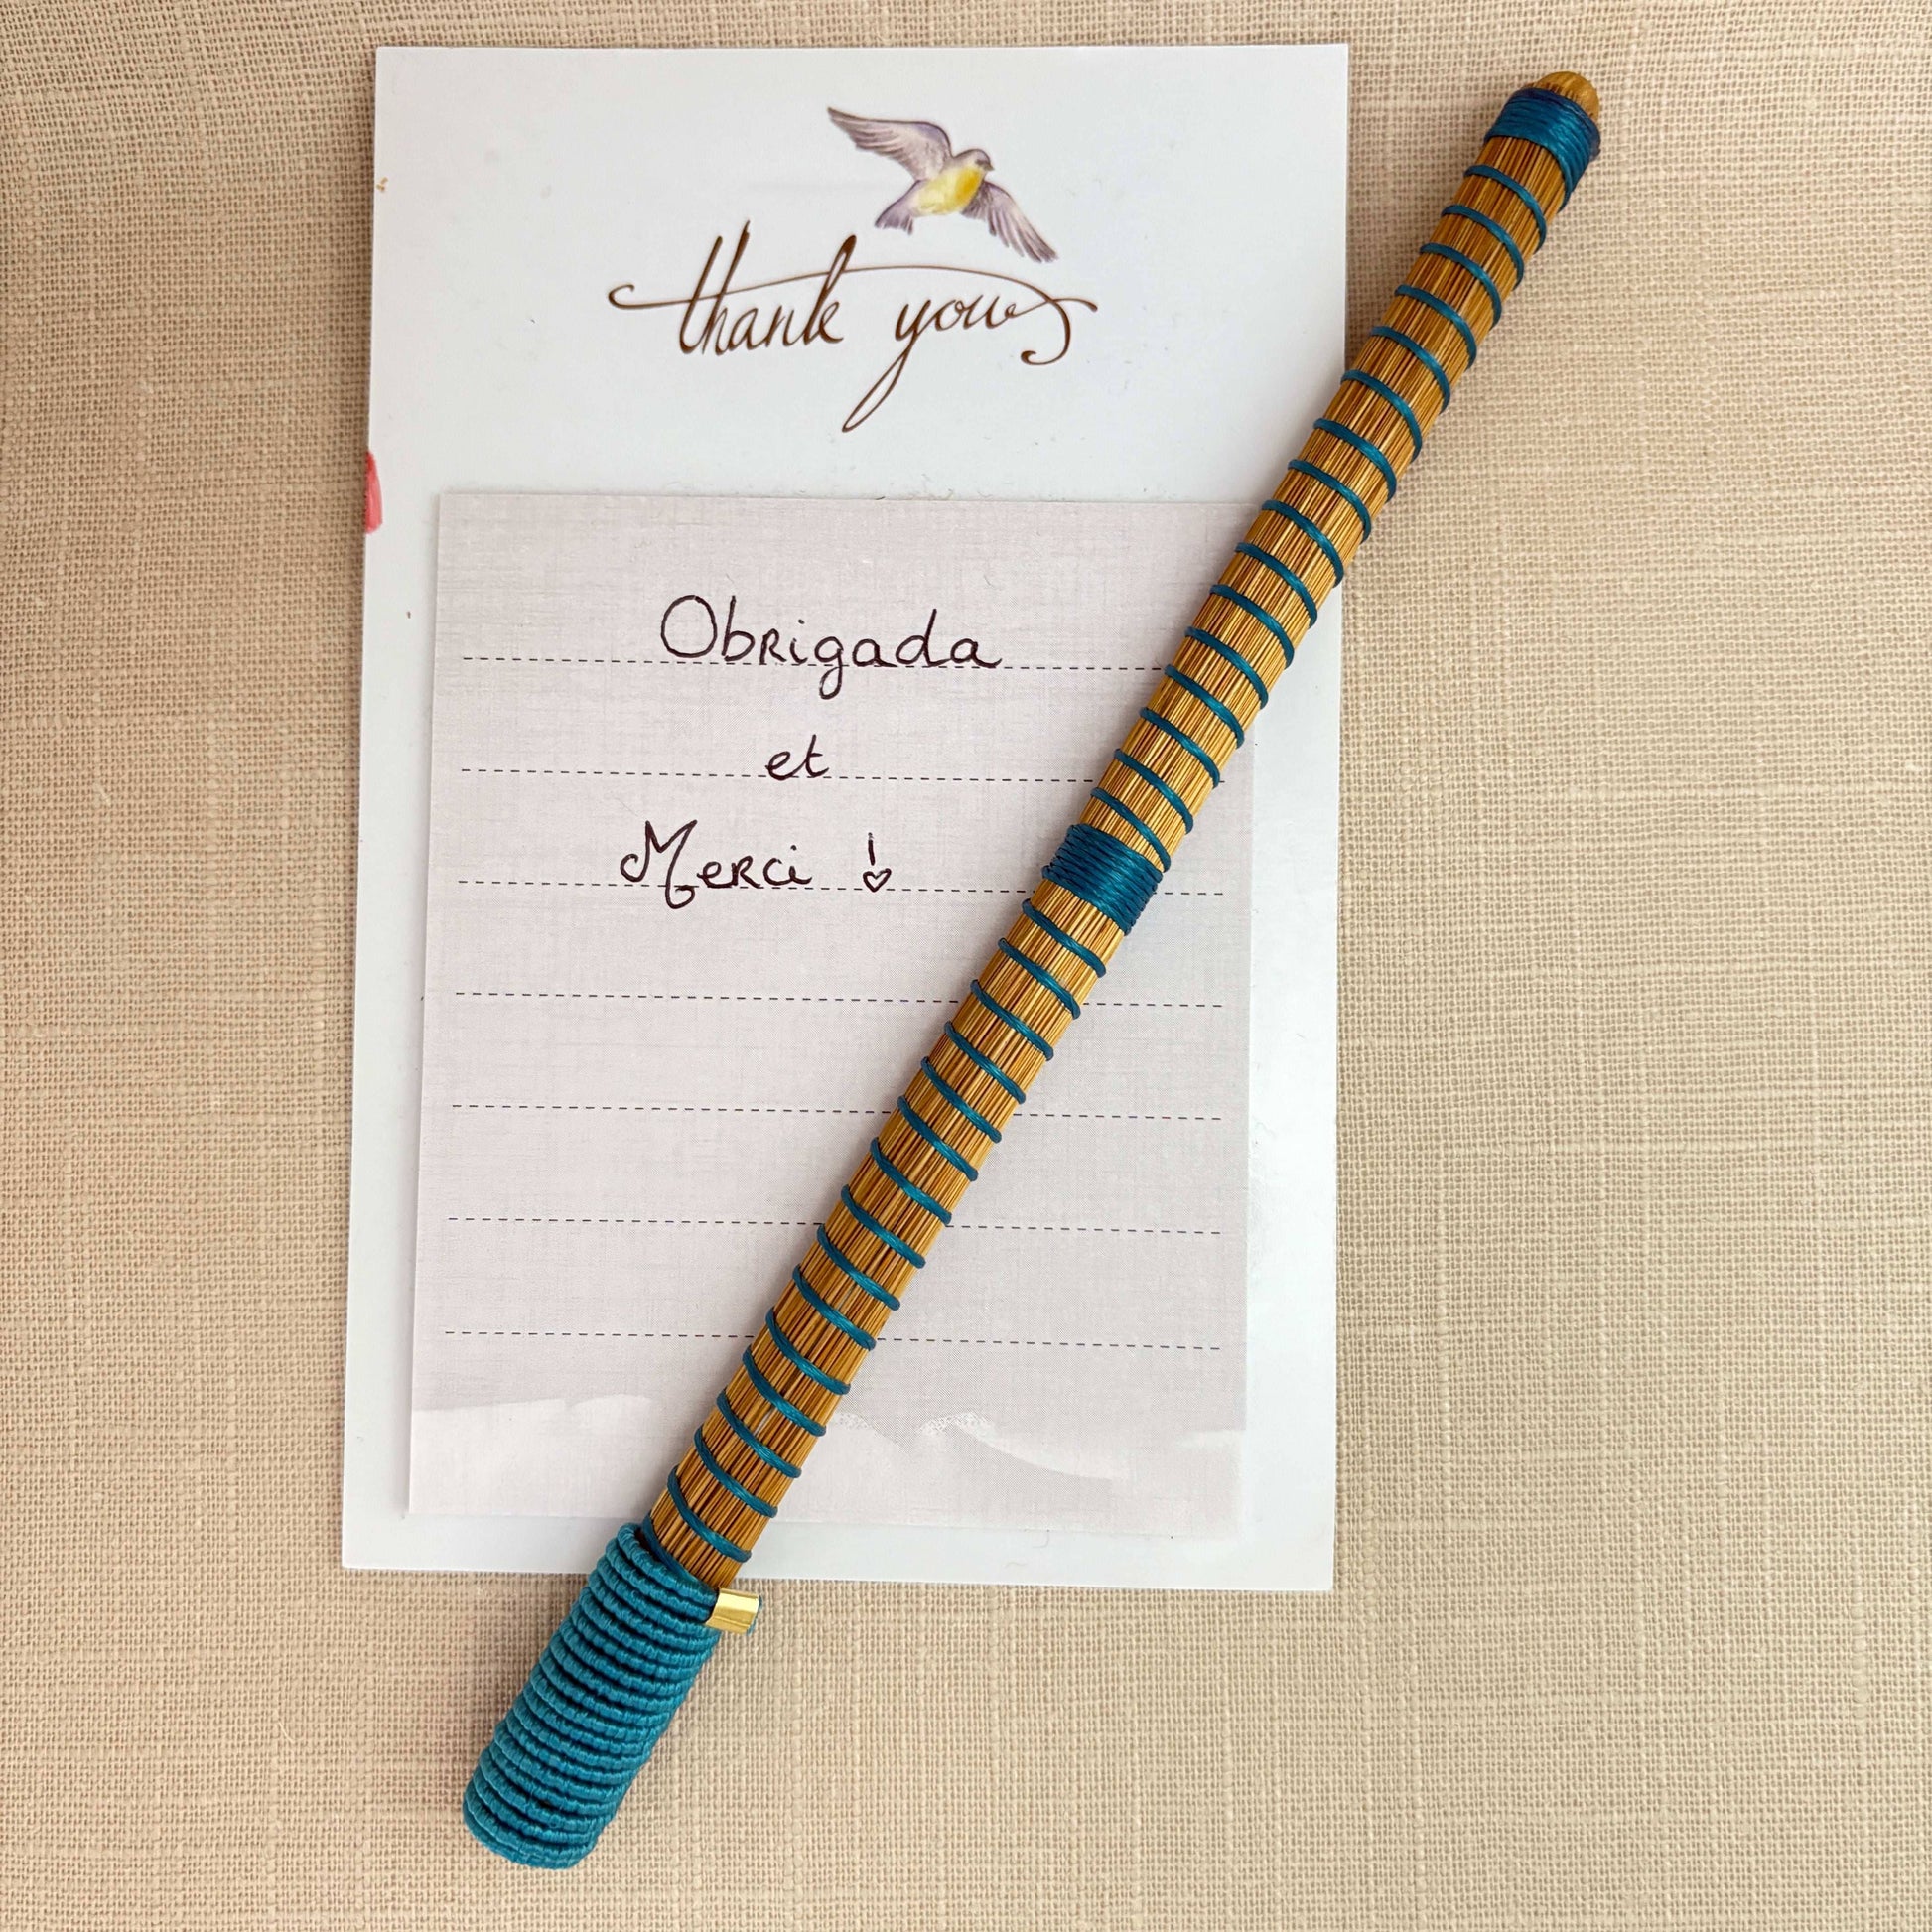 thank you
Obrigada
et
Merci !